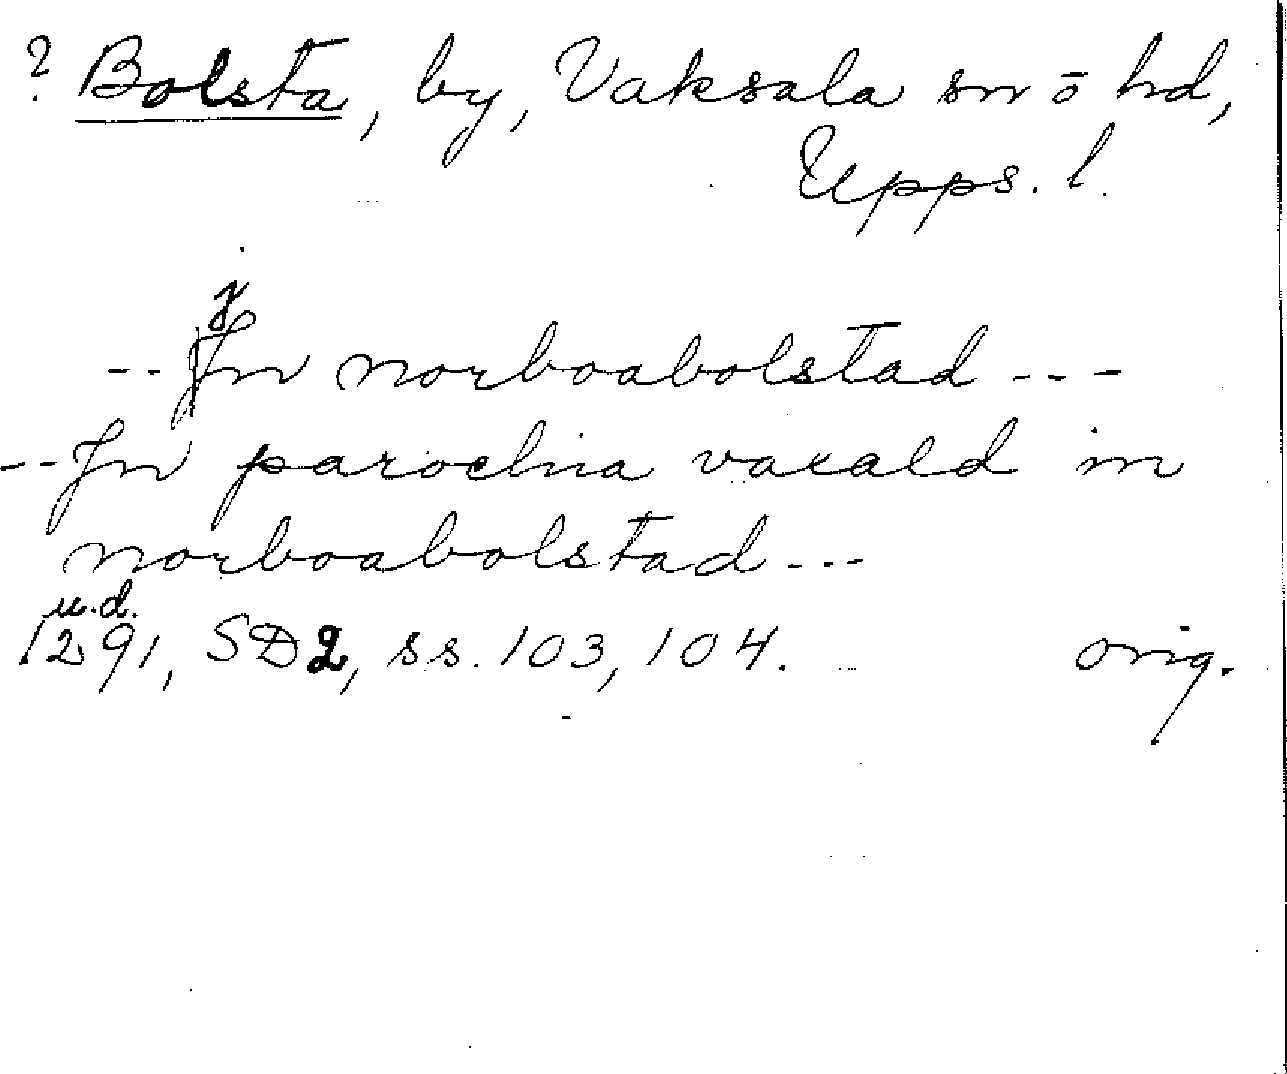 ? Bolsta, by, Vaksala sn o hd,
Upps. l.
j
-- Jn norboabolstad ---
-- Jn parochia vaxald in
norboabolstad ---
u.d.
1291, SD2, ss. 103, 104. orig.